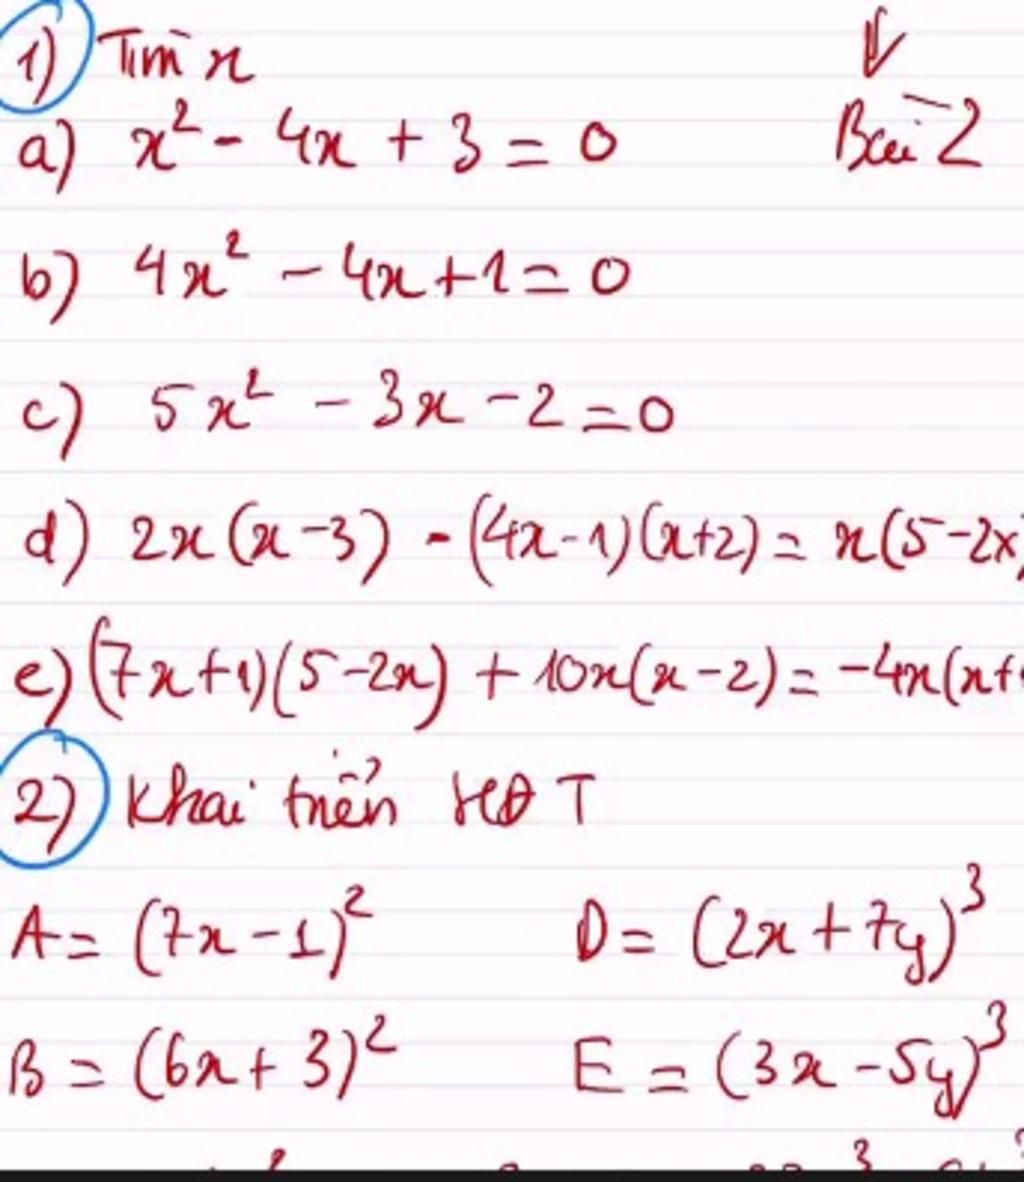 1) Tìm x
a) x² - 4x + 3 = 0
Bài 2
b) 4x² - 4x + 1 = 0
c) 5x² - 3x - 2 = 0
d) 2x(x-3) - (4x-1)(x+2) = x(5-2x
e) (7x+1)(5-2x) + 10x(x-2) = -4x(x+
2) Khai triển HĐT
A = (7x-1)² D = (2x+7y)³
B = (6x+3)² E = (3x-5y)³